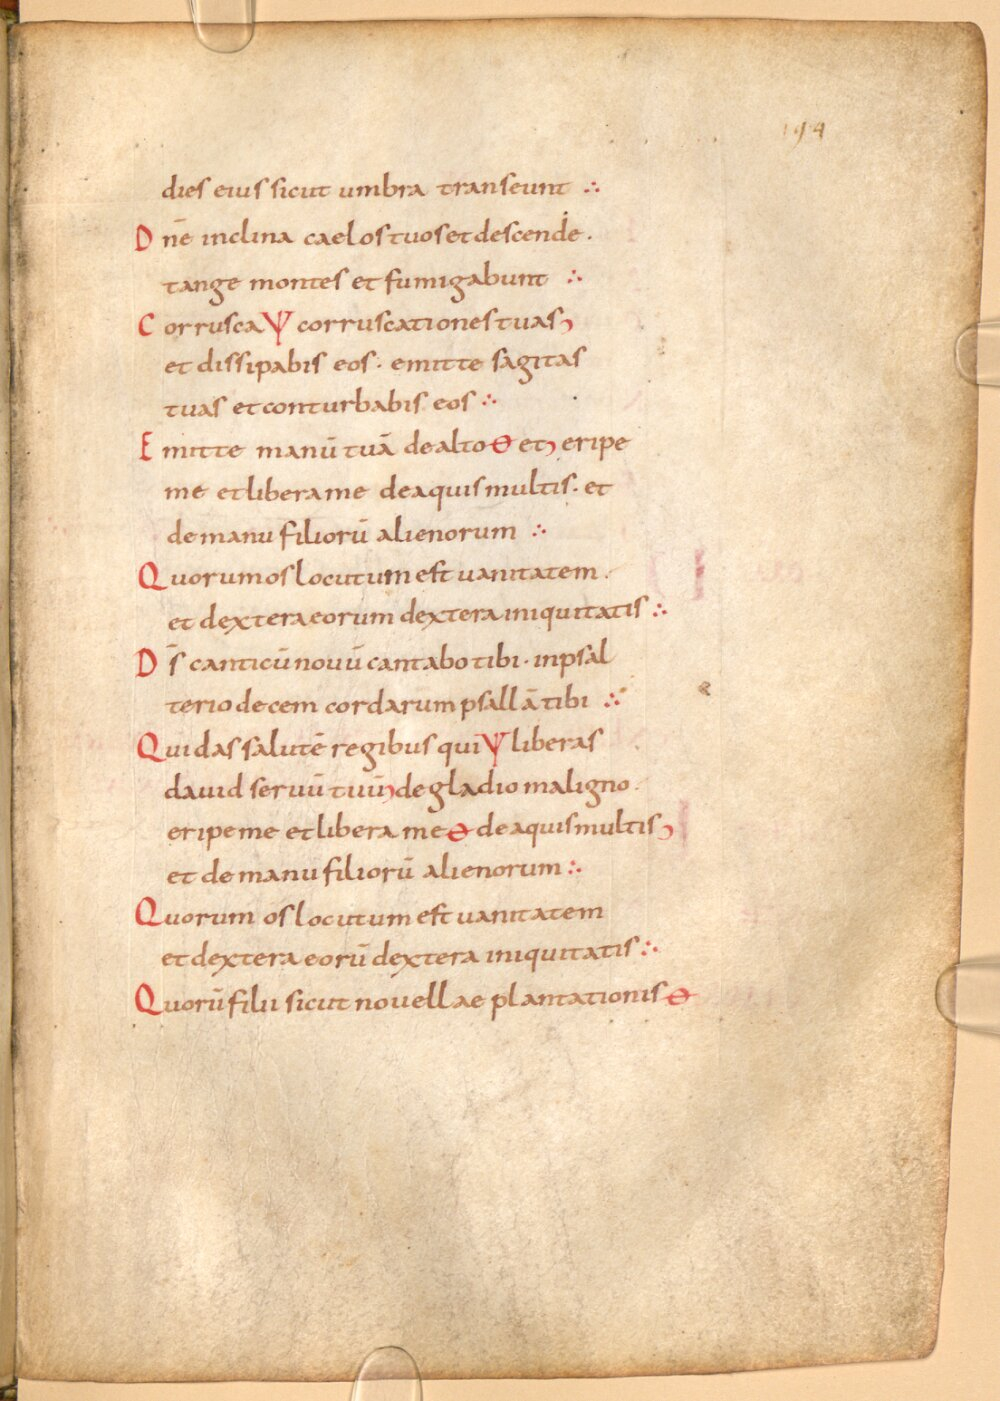 194
dies eius sicut umbra transeunt ∴
Dn̄e inclina caelos tuos et descende .
tange montes et fumigabunt ∴
Corrusca Ψ corruscationes tuas
et dissipabis eos · emitte sagitas
tuas et conturbabis eos ∴
Emitte manū tuā de alto ⊖ et eripe
me et libera me de aquis multis · et
de manu filiorū alienorum ∴
Quorum os locutum est uanitatem .
et dextera eorum dextera iniquitatis ∴
Ds̄ canticū nouū cantabo tibi · in psal
terio decem cordarum psallā tibi ∴
Qui das salutē regibus qui Ψ liberas
dauid seruū tuū de gladio maligno .
eripe me et libera me ⊖ de aquis multis
et de manu filiorū alienorum ∴
Quorum os locutum est uanitatem
et dextera eorū dextera iniquitatis ∴
Quorū filii sicut nouellae plantationis ⊖